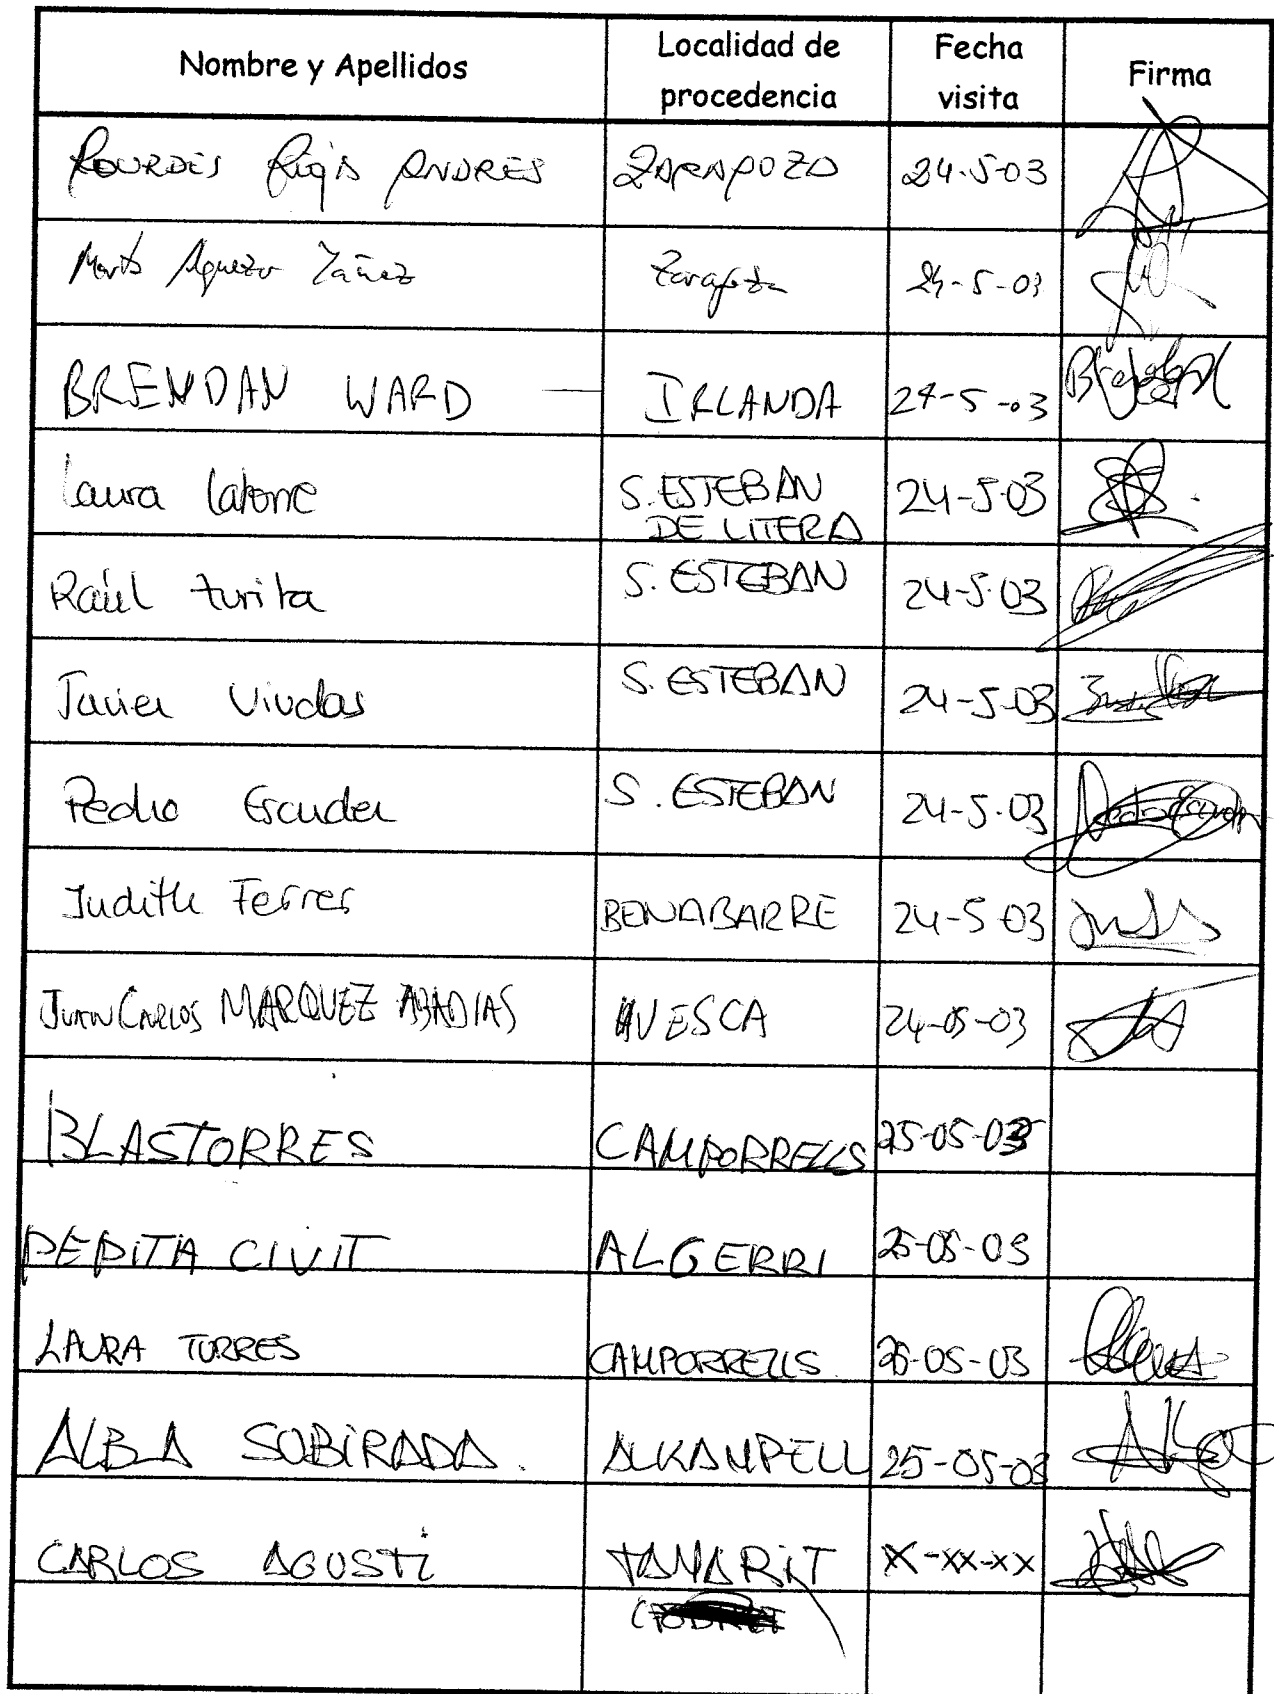 Nombre y Apellidos Localidad de procedencia Fecha visita Firma
LOURDES ANDRES ZARAGOZA 24-5-03
Yáñez Zaragoza 24-5-03
BRENDAN WARD — IRLANDA 24-5-03
Laura Latorre S. ESTEBAN DE LITERA 24-5-03
Raúl Zurita S. ESTEBAN 24-5-03
Javier Vivdas S. ESTEBAN 24-5-03
Pedro Escuder S. ESTEBAN 24-5-03
Judith Ferrer BENABARRE 24-5 03
JUAN CARLOS MARQUEZ ABADIAS HUESCA 24-05-03
BLAS TORRES CAMPORRELLS 25-05-03
PEPITA CIVIT ALGERRI 25-05-03
LAURA TORRES CAMPORRELLS 25-05-03
ALBA SOBIRADA. ALKAMPELL 25-05-03
CARLOS AGUSTI TAMARIT X-XX-XX